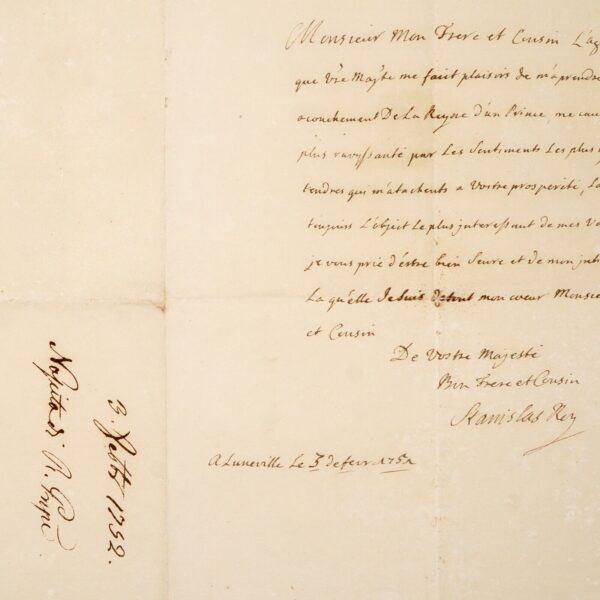 Monsieur Mon Frere et Cousin L'ag
que Vre Majte me faict plaisirs de m'aprendre
acouchement De La Reyne d'un Prince, me cau
plus ravyssante par Les Sentiments Les plus
tendres qui m'atachents a Vostre prosperité, La
toujours L'object Le plus interessant de mes Vo
je vous prie d'éstre bien Seure et de mon
La qu'elle Je suis de tout mon coeur Monsie
et Cousin
De Vostre Majesté
Bon Frere et Cousin
Stanislas Rey
A Luneville Le 3 de 1752
3. 1752.
Nascita di R.